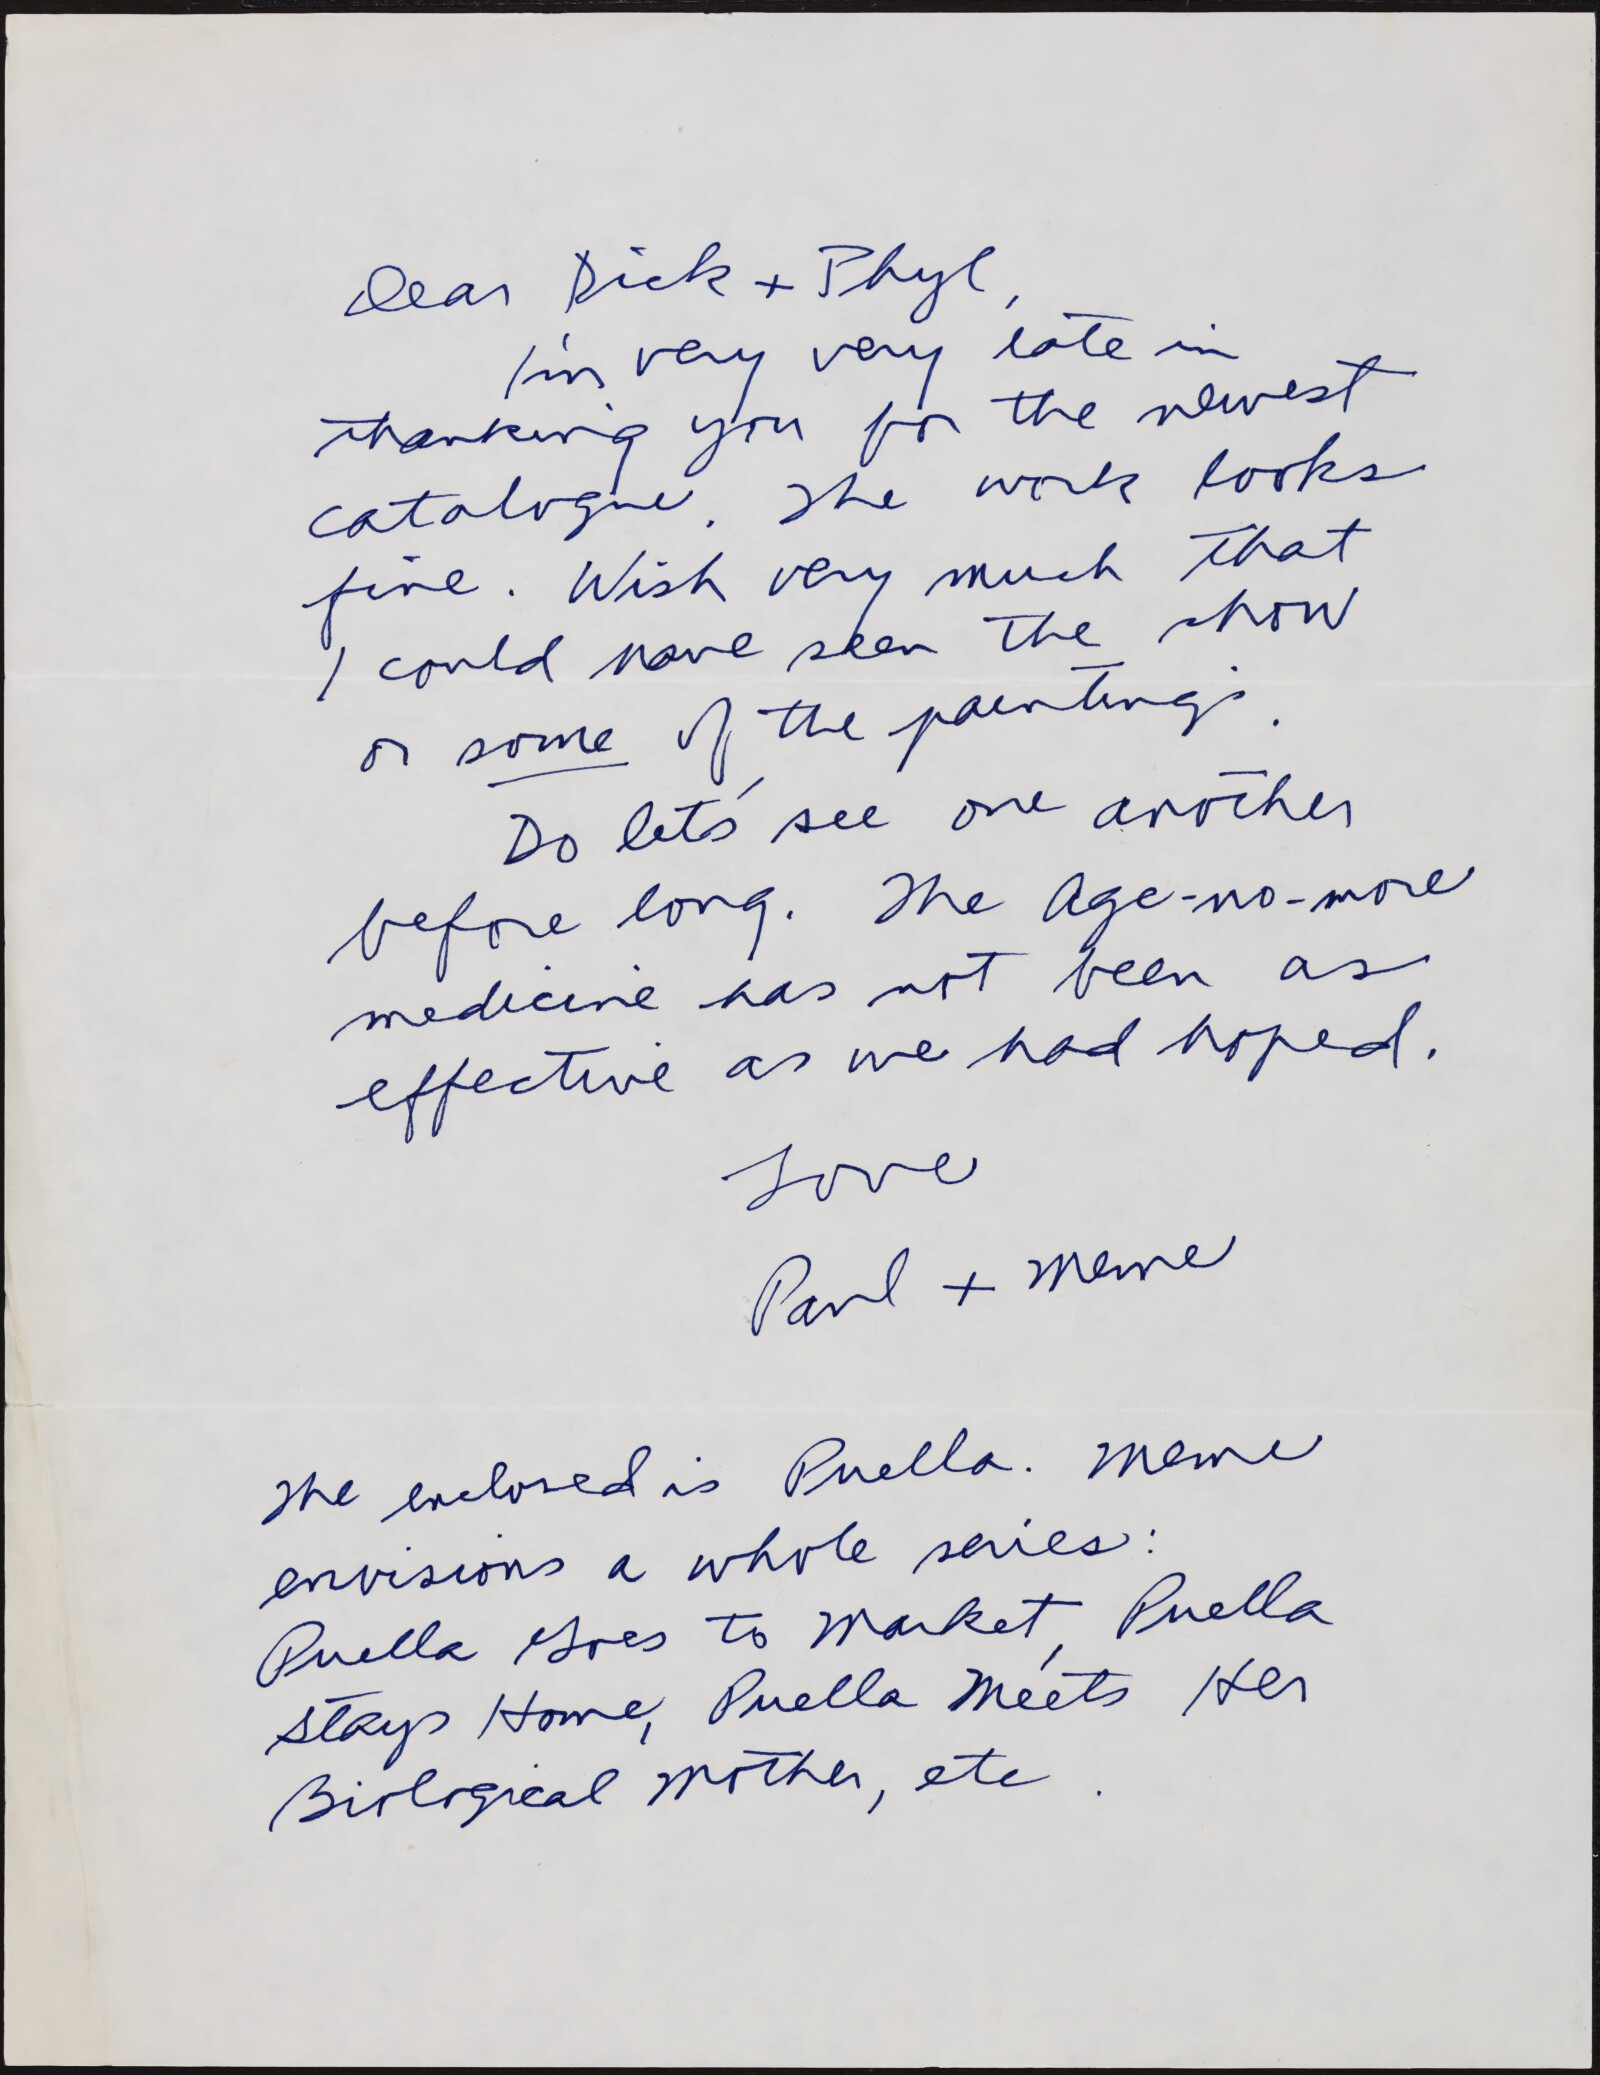 Dear Dick + Phyl,
I'm very very late in
thanking you for the newest
catalogue. The work looks
fine. Wish very much that
I could have seen the show
or some of the paintings.
Do let's see one another
before long. The Age-no-more
medicine has not been as
effective as we had hoped.
Love
Paul + Meme
The enclosed is Puella. Meme
envisions a whole series:
Puella Goes to Market, Puella
Stays Home, Puella Meets Her
Biological Mother, etc.